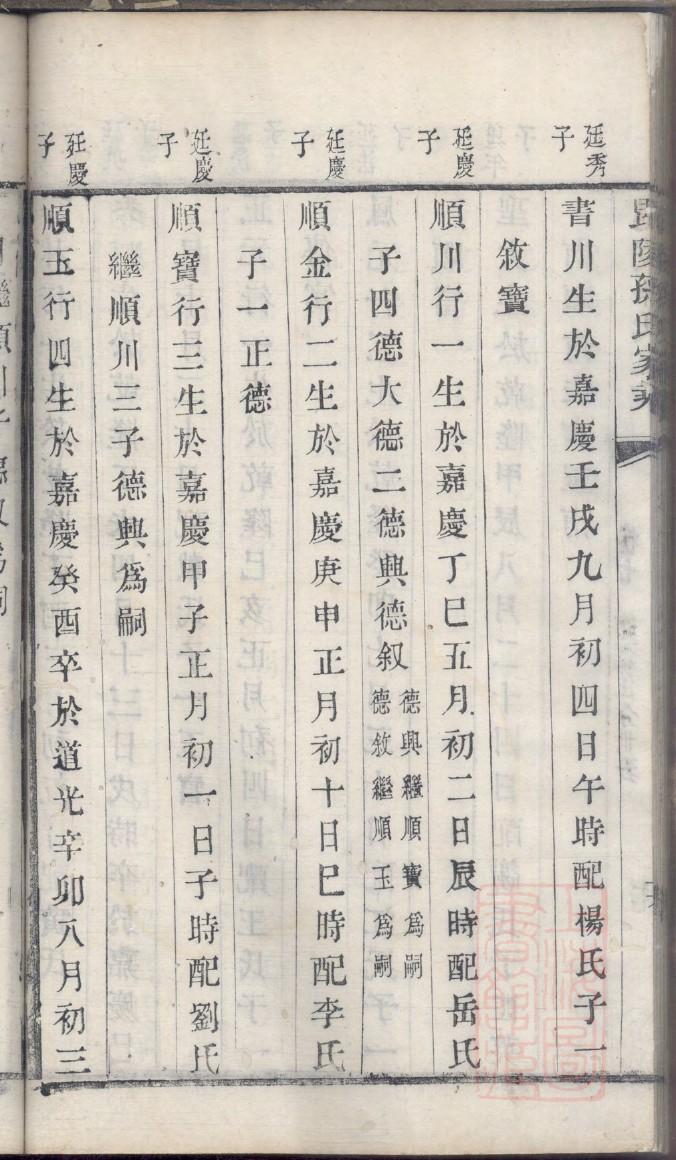 毘陵孫氏家乘
廷秀子
書川生於嘉慶壬戌九月初四日午時配楊氏子一
敘寶
廷慶子
順川行一生於嘉慶丁巳五月初二日辰時配岳氏
子四德大德二德興德叙 德興繼順寶為嗣
德敘繼順玉為嗣
廷慶子
順金行二生於嘉慶庚申正月初十日巳時配李氏
子一正德
廷慶子
順寶行三生於嘉慶甲子正月初一日子時配劉氏
繼順川三子德興爲嗣
廷慶子
順玉行四生於嘉慶癸酉卒於道光辛卯八月初三